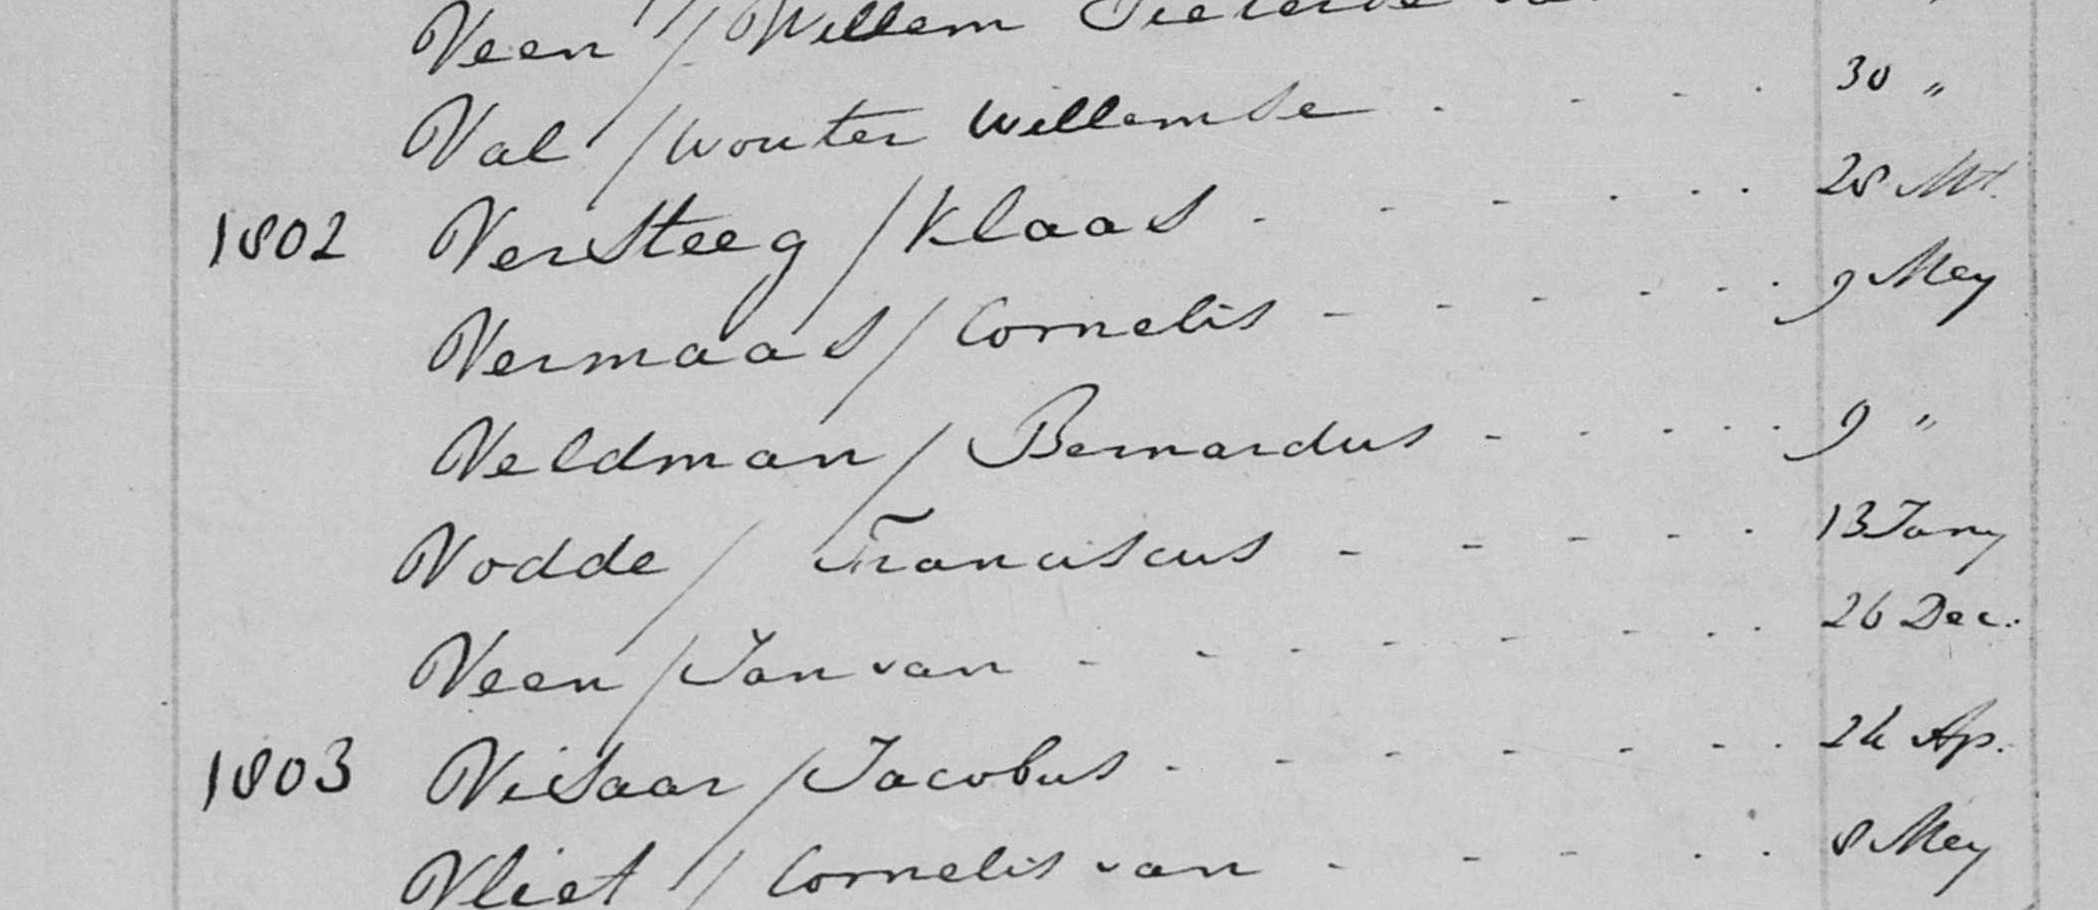 Veen / Willem Pieterse
Val / Wouter Willemse . . . . 30 "
1802 Versteeg / Klaas . . . . . 28 Mt.
Vermaas / Cornelis - - - - . . 9 Mey
Veldman / Bernardus - - . . . 9 "
Vodde / Franciscus - - - - . 13 Jany
Veen / Jan van - - - - - . . 26 Dec.
1803 Visaar / Jacobus . - - - - . 24 Ap.
Vliet / Cornelis van - - - . . 8 Mey